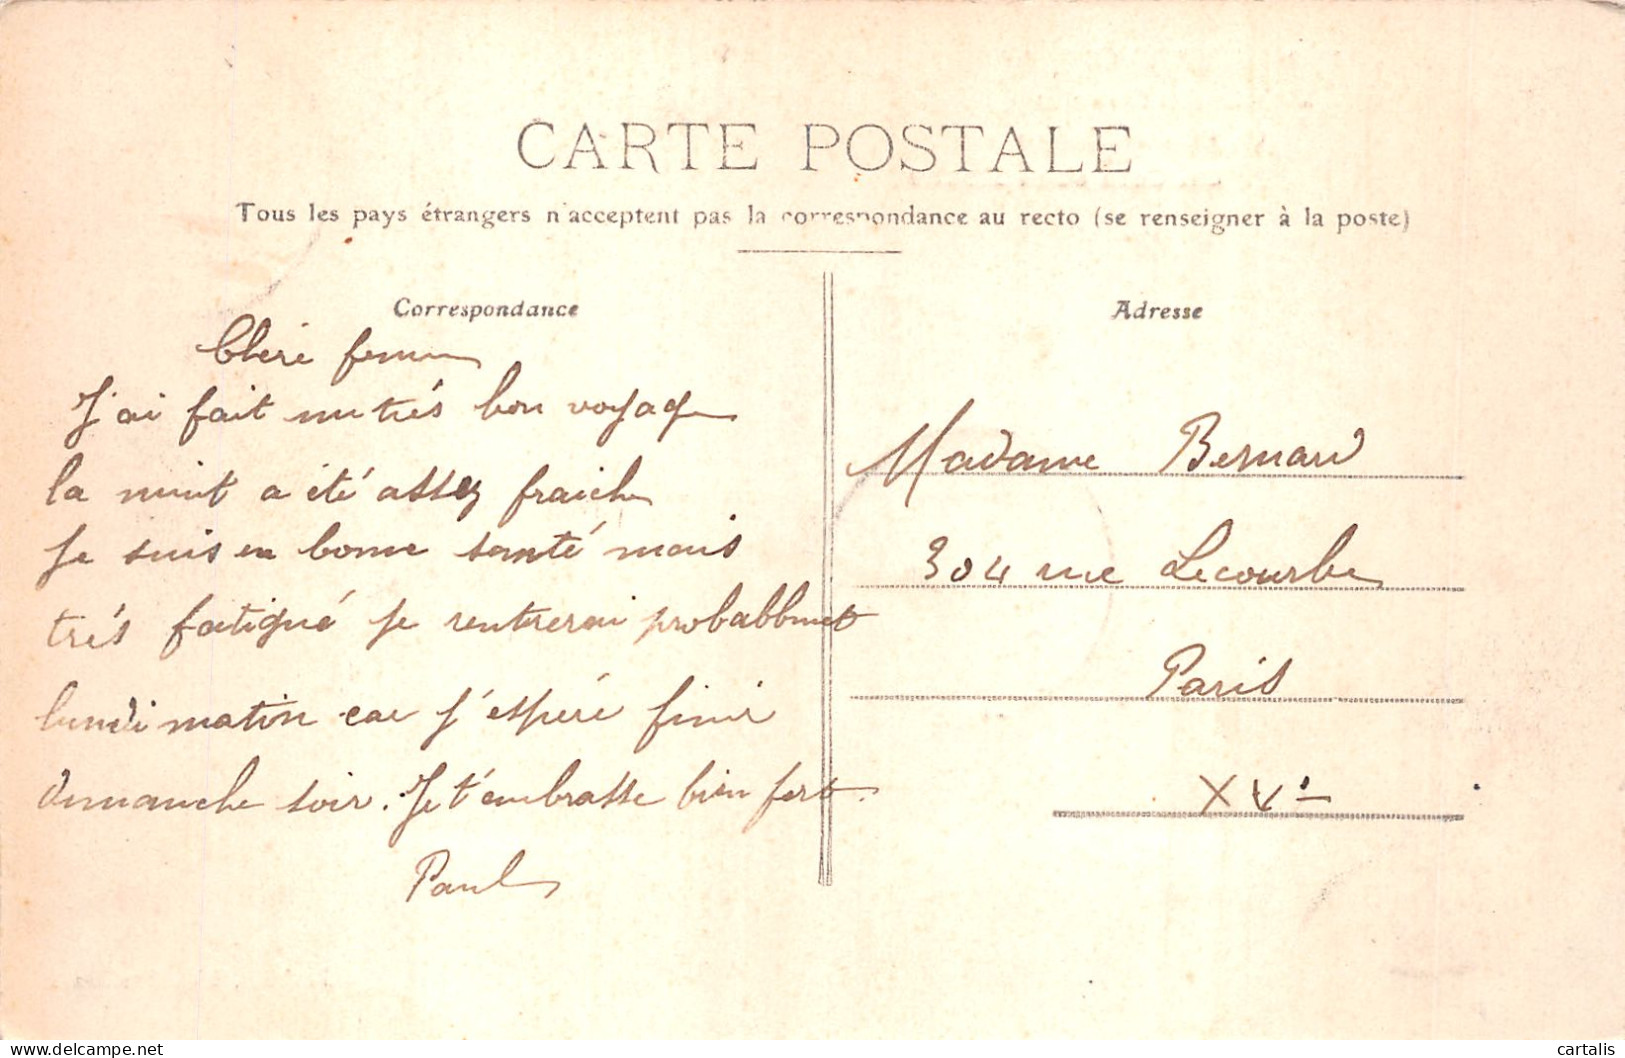 CARTE POSTALE
Tous les pays étrangers n'acceptent pas la correspondance au recto (se renseigner à la poste)
Correspondance
Chère femme
J'ai fait un très bon voyage
la nuit a été assez fraiche
Je suis en bonne santé mais
très fatigué je rentrerai probablement
lundi matin car j'espére finir
dimanche soir. Je t'embrasse bien fort.
Paul
Adresse
Madame Bernard
304 rue Lecourbe
Paris
XVe
delcampe.net
cartalis